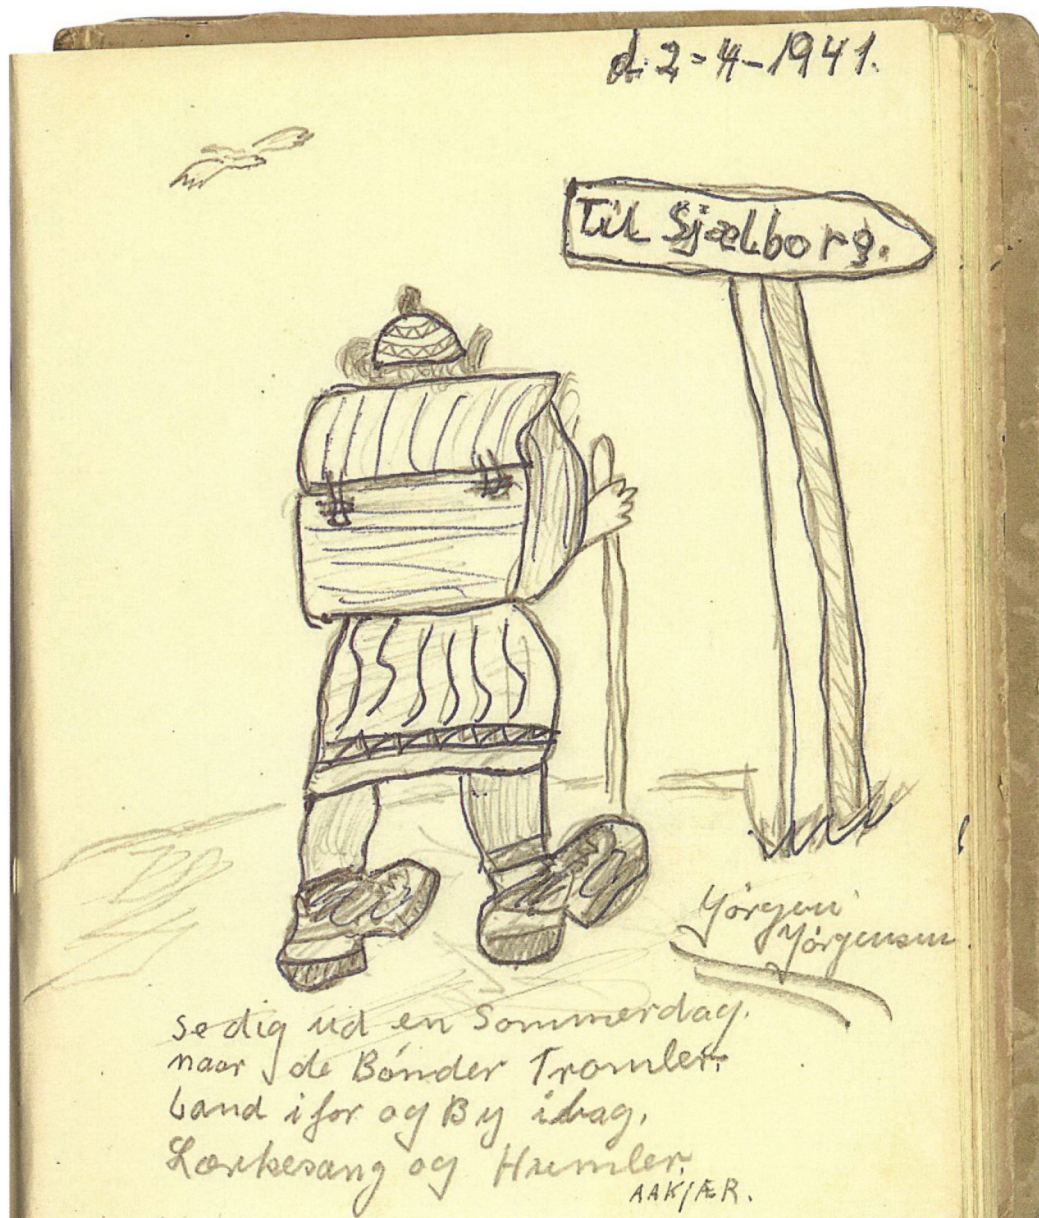 d. 2-4-1941.
Til Sjælborg.
Jørgen
Jørgensen
se dig ud en Sommerdag.
naar de Bønder Tromler.
Land i for og By i bag.
Lærkesang og Humler.
AAKJÆR.